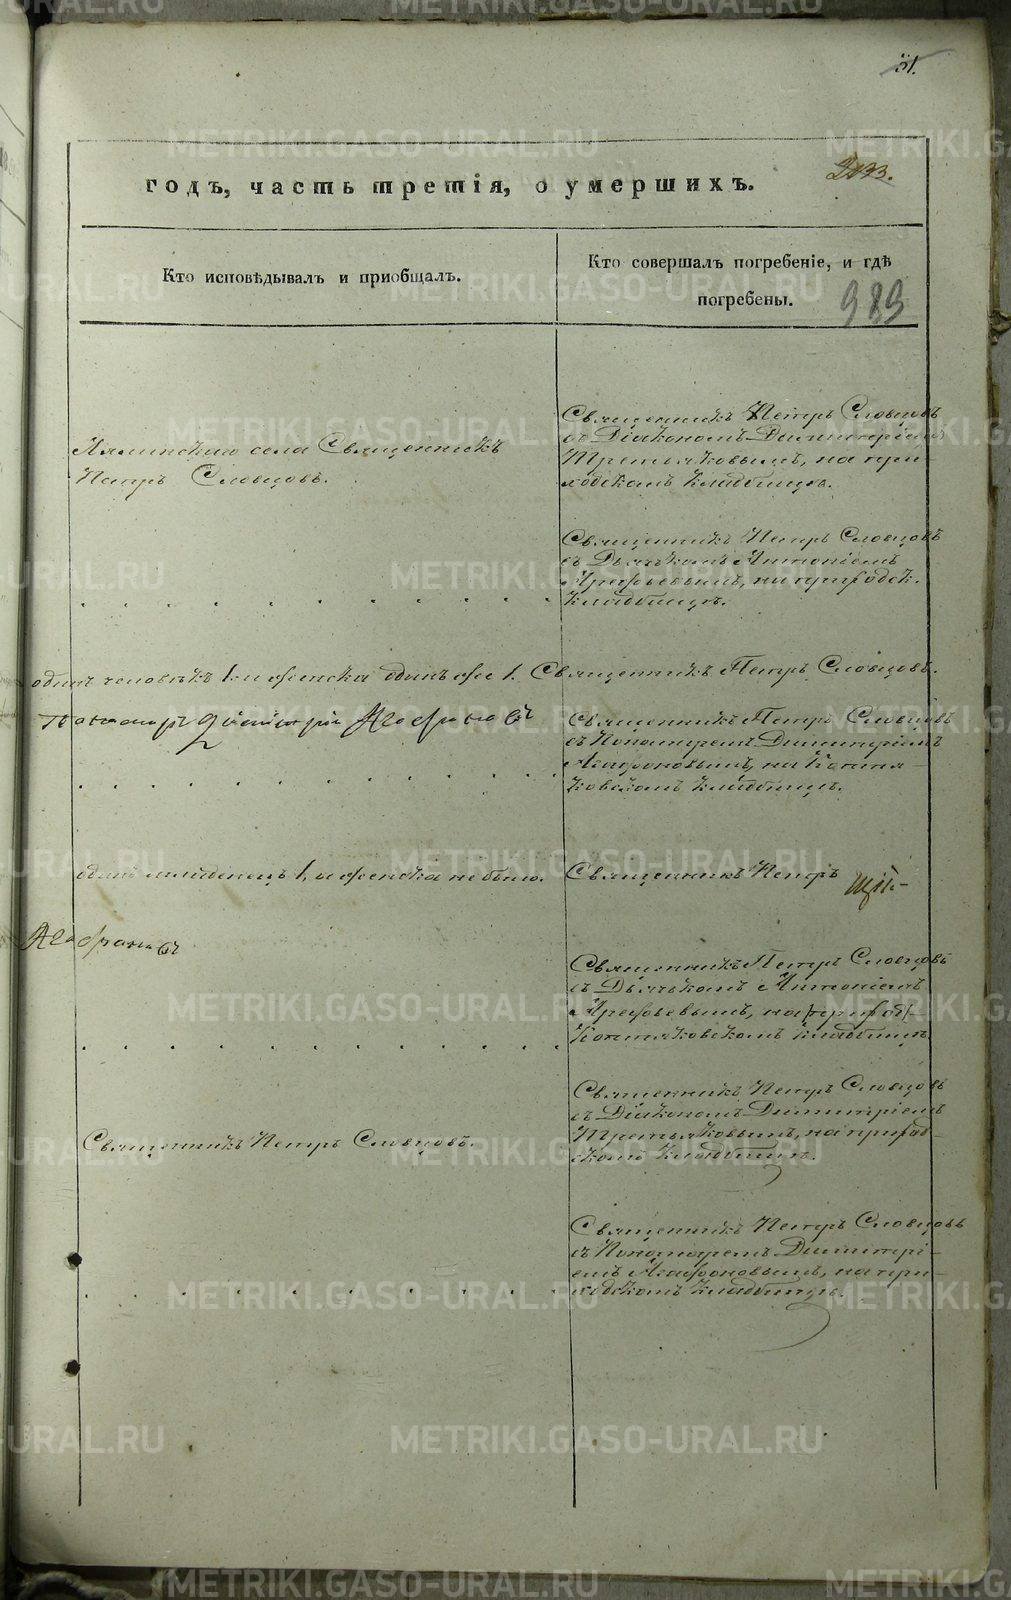 51.
годъ, часть третія, о умершихъ.
2133.
Кто исповѣдывалъ и приобщалъ.
Кто совершалъ погребеніе, и гдѣ
погребены.
989
Лялинскаго села Священникъ
Петръ Словцовъ.
Священникъ Петръ Словцовъ
съ Діакономъ Димитріемъ
Третьяковымъ, на при-
ходскомъ кладбищѣ.
Священникъ Петръ Словцовъ
съ Дьячкомъ Антоніемъ
Арефьевымъ, на приходск.
кладбищѣ.
одинъ человѣкъ 1. и женска одинъ же 1. Священникъ Петръ Словцовъ.
Пономарь Димитрій Агафоновъ
Священникъ Петръ Словцовъ
съ Пономаремъ Димитріемъ
Агафоновымъ, на Коптя-
ковскомъ кладбищѣ.
одинъ младенецъ 1, а женска не было.
Священникъ Петръ
Агафоновъ
Священникъ Петръ Словцовъ
съ Дьячкомъ Антоніемъ
Арефьевымъ, на
Коптяковскомъ кладбищѣ.
Священникъ Петръ Словцовъ.
Священникъ Петръ Словцовъ
съ Діакономъ Димитріемъ
Третьяковымъ, на приход-
скомъ кладбищѣ.
Священникъ Петръ Словцовъ
съ Пономаремъ Димитрі-
емъ Агафоновымъ, на при-
ходскомъ кладбищѣ.
METRIKI.GASO-URAL.RU